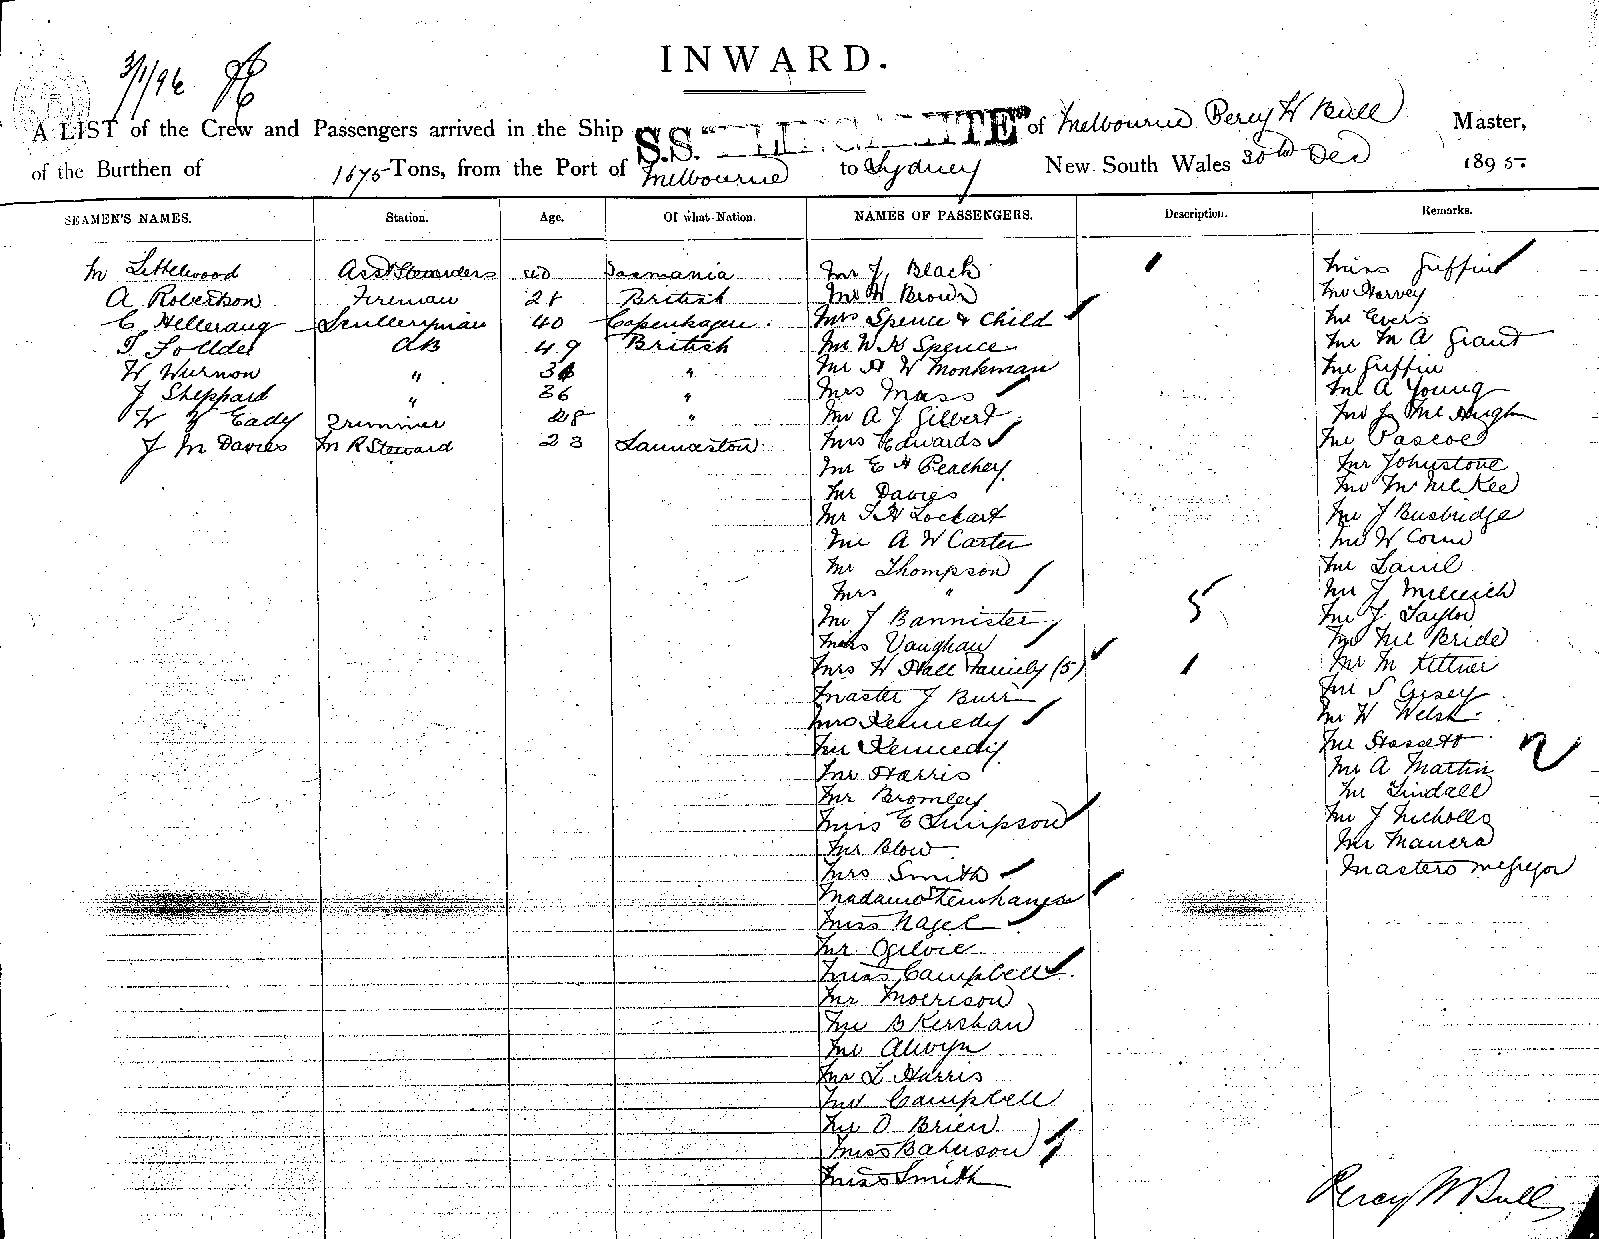 INWARD.
3/1/96
A LIST of the Crew and Passengers arrived in the Ship S.S. of Melbourne Percy W Bull Master,
of the Burthen of 1675 Tons, from the Port of Melbourne to Sydney New South Wales 30th Dec 1895.
SEAMEN'S NAMES. Station. Age. Of what Nation. NAMES OF PASSENGERS. Description. Remarks.
M Littlewood Asst Stewardess 40 Tasmania Mr J. Black Miss Griffin
A Robertson Fireman British Mr W Brown Mr Harvey
C Sculleryman 40 Copenhagen Mrs Spence & Child Mr Evers
AB 49 British Mr W H Spence Mr M A Grant
W Wurnon " " Mr H W Monkman Mr Griffin
J Sheppard " 36 " Mrs Mass Mr A Young
W Eady Trimmer 28 " Mr A J Gilbert Mr J McHugh
J M Davies M R Steward 23 Launceston Mrs Edwards Mr Pascoe
Mr E H Peachey Mr Johnstone
Mr Davies Mr McKee
Mr Lockart Mr J Busbridge
Mr A W Carter Mr W
Mr Thompson Mr
Mrs " Mr J
Mr J Bannister 5 Mr J Taylor
Miss Vaughan Mr McBride
Mrs W Hall Family (5) 1 Mr M
Master J Burr Mr S
Mrs Kennedy Mr W Welsh
Mr Kennedy Mr
Mr Harris Mr A Martin
Mr Bromley Mr Tindall
Miss E Simpson Mr J Nicholls
Mr Blow Mr Manera
Mrs Smith Masters McGregor
Madame
Miss Nagel
Mr Ogilvie
Miss Campbell
Mr Morrison
Mr B Kershaw
Mr Alwyn
Mr L Harris
Mr Campbell
Mr O Brien
Miss
Miss Smith
Percy W Bull